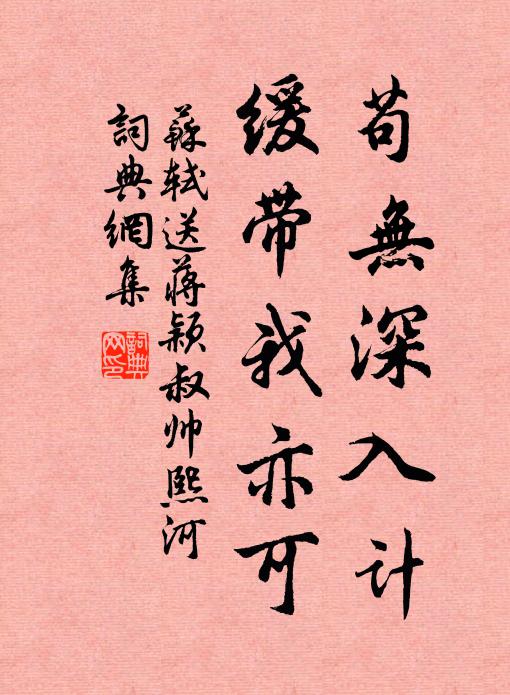 苟無深入計
缓带我亦可
蘇轼送蔣颖叔帅熙河
詞典網集
詞典网印